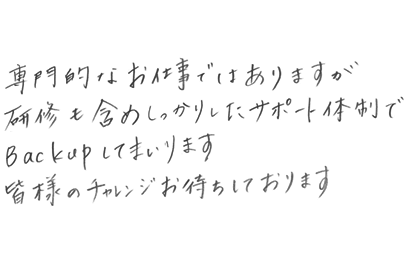 専門的なお仕事ではありますが
研修も含めしっかりしたサポート体制で
Backupしてまいります
皆様のチャレンジお待ちしております